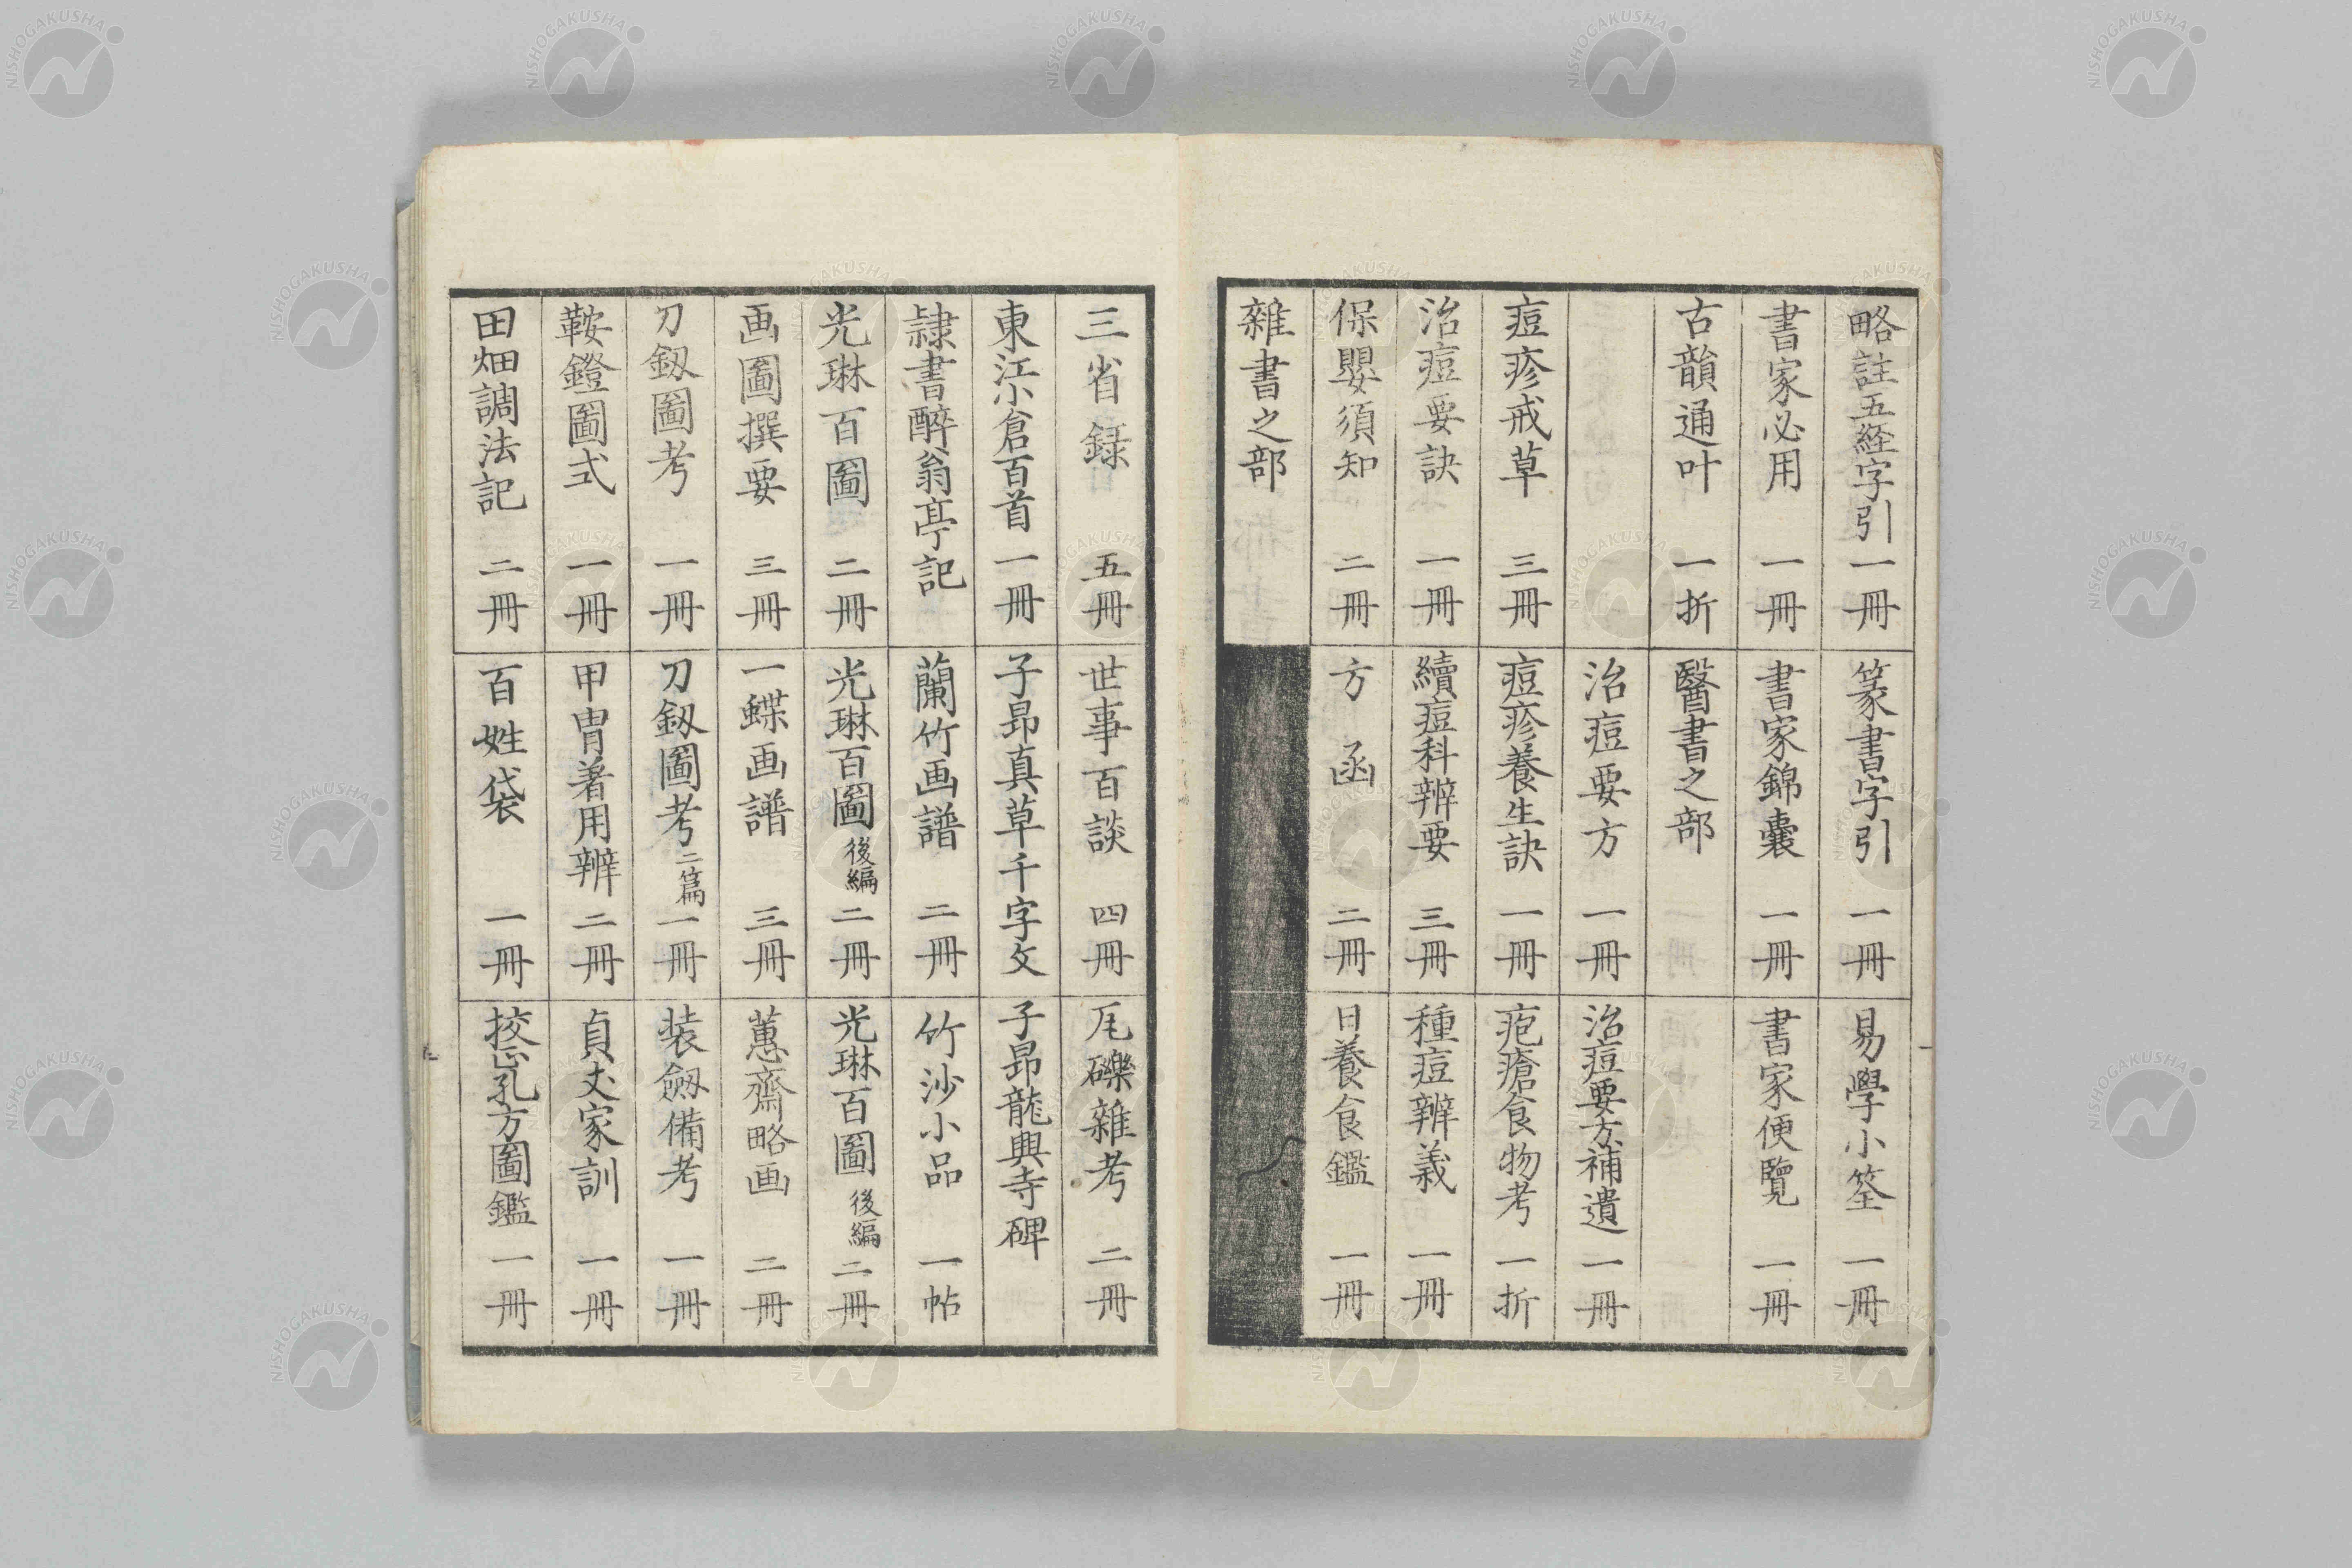 略註五経字引 一冊
篆書字引 一冊
易學小筌 一冊
書家必用 一冊
書家錦囊 一冊
書家便覽 一冊
古韻通叶 一折
醫書之部
治痘要方 一冊
治痘要方補遺 一冊
痘疹戒草 三冊
痘疹養生訣 一冊
疱瘡食物考 一折
治痘要訣 一冊
續痘科辨要 三冊
種痘辨義 一冊
保嬰須知 二冊
方函 二冊
日養食鑑 一冊
雜書之部
三省録 五冊
世事百談 四冊
瓦礫雜考 二冊
東江小倉百首 一冊
子昂真草千字文
子昂龍興寺碑
隷書醉翁亭記
蘭竹画譜 二冊
竹沙小品 一帖
光琳百圖 二冊
光琳百圖後編 二冊
光琳百圖後編 二冊
画圖撰要 三冊
一蝶画譜 三冊
蕙齋略画 二冊
刀釼圖考 一冊
刀釼圖考二篇 一冊
装劔備考 一冊
鞍鐙圖式 一冊
甲冑著用辨 二冊
貞丈家訓 一冊
田畑調法記 二冊
百姓袋 一冊
挍正孔方圖鑑 一冊
NISHOGAKUSHA